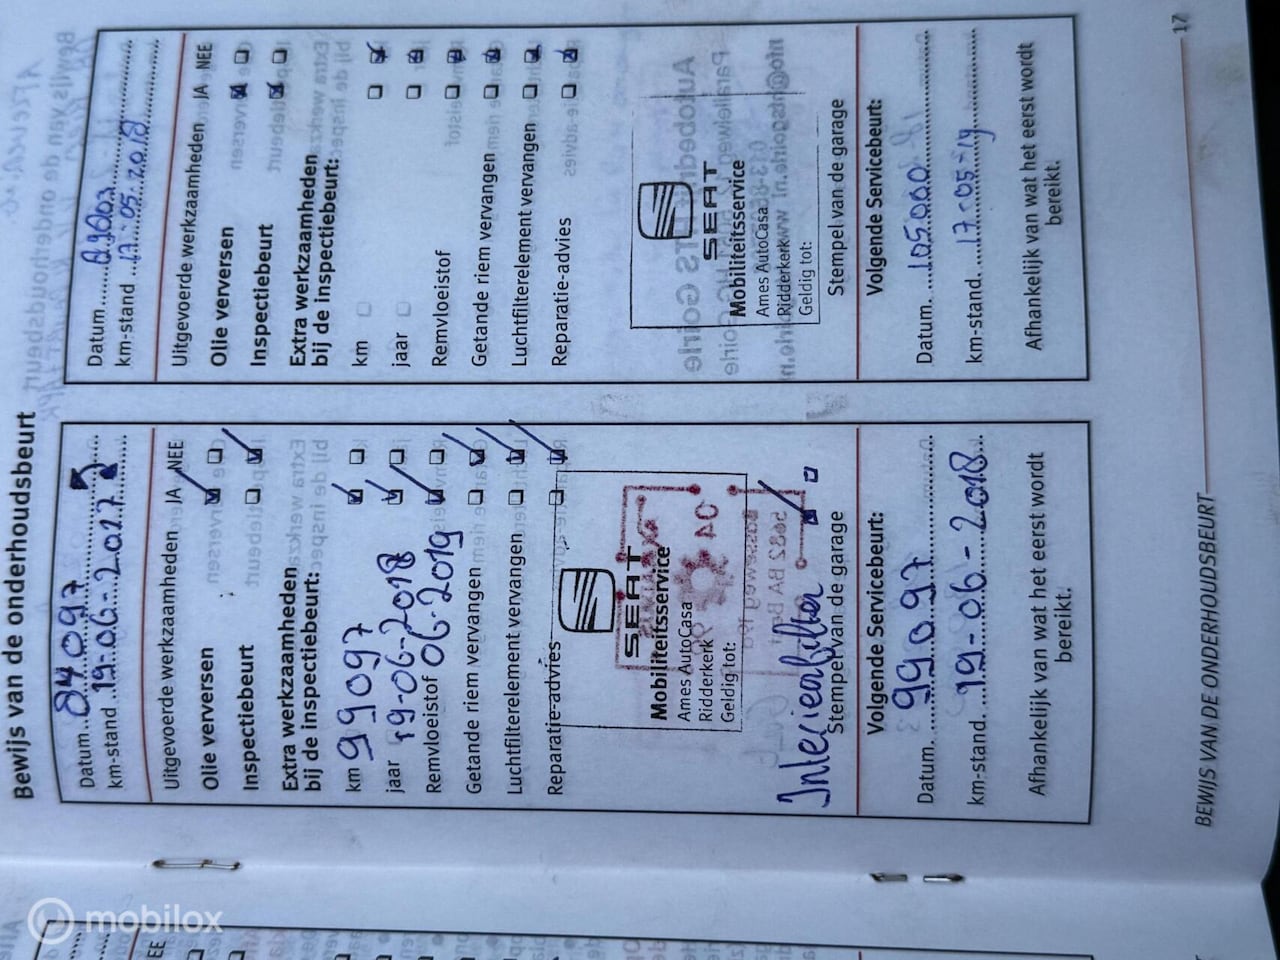 Bewijs van de onderhoudsbeurt
Datum 84097
km-stand 19-06-2017
Uitgevoerde werkzaamheden JA NEE
Olie verversen
Inspectiebeurt
Extra werkzaamheden
bij de inspectiebeurt:
km 99097
jaar 19-06-2018
Remvloeistof 06-2019
Getande riem vervangen
Luchtfilterelement vervangen
Reparatie-advies
SEAT
Mobiliteitsservice
Ames AutoCasa
Ridderkerk
Geldig tot:
Interieurfilter
Stempel van de garage
Volgende Servicebeurt:
Datum 99097
km-stand 19-06-2018
Afhankelijk van wat het eerst wordt
bereikt.
Datum
km-stand 17-05-2018
Uitgevoerde werkzaamheden JA NEE
Olie verversen
Inspectiebeurt
Extra werkzaamheden
bij de inspectiebeurt:
km
jaar
Remvloeistof
Getande riem vervangen
Luchtfilterelement vervangen
Reparatie-advies
SEAT
Mobiliteitsservice
Ames AutoCasa
Ridderkerk
Geldig tot:
Stempel van de garage
Volgende Servicebeurt:
Datum 105000
km-stand 17-05-19
Afhankelijk van wat het eerst wordt
bereikt.
BEWIJS VAN DE ONDERHOUDSBEURT 17
mobilox